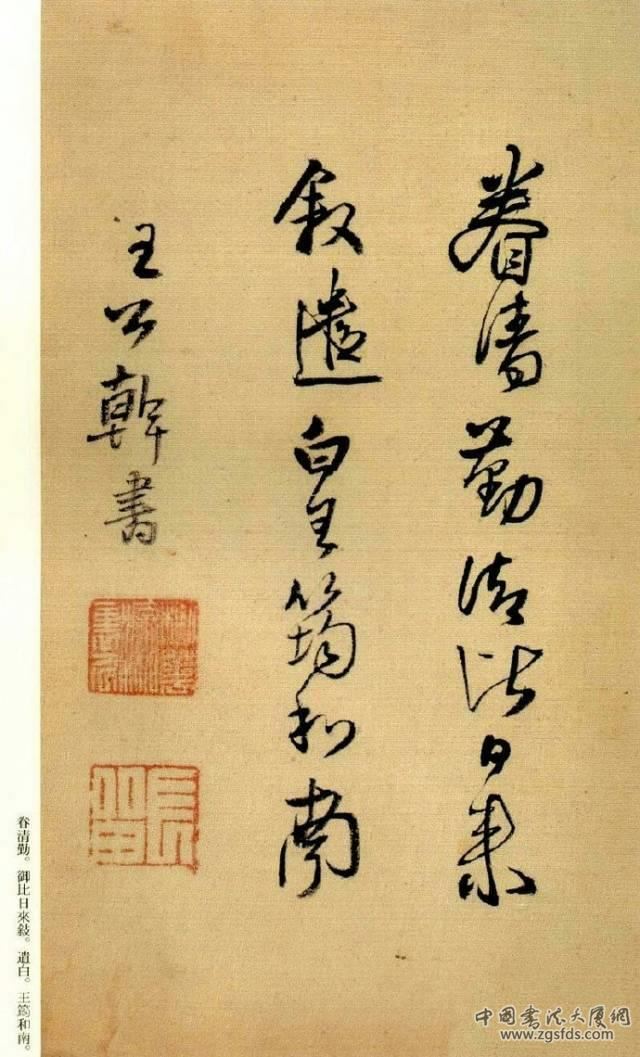 眷清勤御比日來
敍遣白王筠和南
王公幹書
眷清勤。御比日來敍。遣白。王筠和南。
中國書法大廈網
www.zgsfds.com